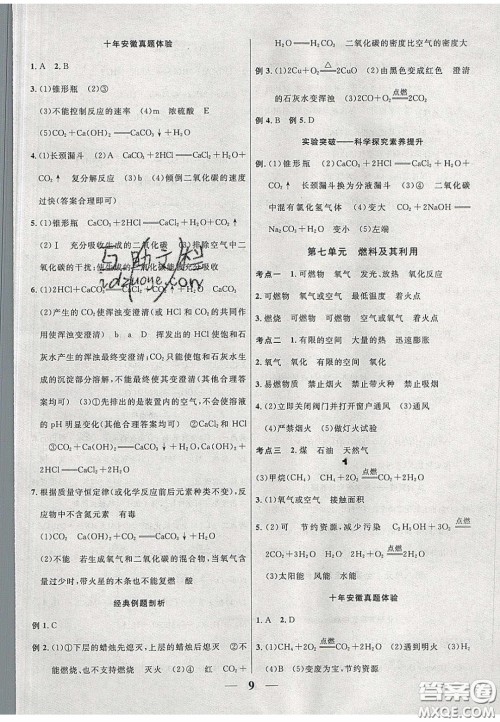 十年安徽真题体验
1. A 2. B
3. (1)锥形瓶 (2)③
(3)不能控制反应的速率 (4)m 浓硫酸 E
(5)CO₂+Ca(OH)₂══CaCO₃↓+H₂O
4. (1)长颈漏斗 (2)CaCO₃+2HCl══CaCl₂+H₂O+
CO₂↑ 复分解反应 (3)b (4)倾倒二氧化碳的速度
过快(答案合理即可)
5. (1)锥形瓶 CaCO₃+2HCl══CaCl₂+H₂O+CO₂↑
(2)Ⅰ 充分吸收生成的二氧化碳 (3)排除空气中二
氧化碳的干扰;使生成的二氧化碳能被充分吸收
6. (1)2HCl+CaCO₃══CaCl₂+CO₂↑+H₂O
(2)产生的CO₂使浑浊变澄清(或CO₂和HCl的共同
作用使浑浊变澄清) b a D 挥发出的HCl使饱和石
灰水产生的浑浊最终变澄清;CO₂只能使饱和石灰水生
成的沉淀部分溶解,不能使其变澄清(其他合理答案
均可) (3)①先排出的是装置内的空气,CO₂不会使溶液
的pH明显变化(其他合理答案均可) ②HCl
③CO₂+Ca(OH)₂══CaCO₃↓+H₂O Ca(OH)₂+2HCl══
CaCl₂+2H₂O
7. 根据质量守恒定律(或化学反应前后元素种类不变),反应物
中不含氮元素 有毒
(1)CO₂+Ca(OH)₂══CaCO₃↓+H₂O
(2)不能 若生成氧气和二氧化碳的混合物,当氧气含
量过少时,带火星的木条也不能复燃 酸
经典例题剖析
例1. C
例2. (1)①下层的蜡烛先熄灭,上层的蜡烛后熄灭 ②不
能燃烧、也不支持燃烧 灭火 (2)①红 CO₂+
H₂O══H₂CO₃ 二氧化碳的密度比空气的密度大
例3. (1)2Cu+O₂═△═2CuO (2)由黑色变成红色 澄清
的石灰水变浑浊 (3)2CO+O₂═点燃═2CO₂
例4. B 例5. D
实验突破——科学探究素养提升
(1)锥形瓶 (2)CaCO₃+2HCl══CaCl₂+H₂O+
CO₂↑ 长颈漏斗换为分液漏斗 (3)④ 二氧化碳中
混有氯化氢气体 (4)变小 CO₂+2NaOH══
Na₂CO₃+H₂O 变小 (5)左端
第七单元 燃料及其利用
考点一 1. 可燃物 氧气 发光、放热 氧化反应
2. 可燃物 氧气或空气 最低温度 着火点
3. 燃烧 可燃物 可燃物 空气或氧气 着火点
考点二 1. 有限的空间 大量的热 迅速膨胀
2. 氧气 氧化 有限的空间 氧化
3. 易燃物质 禁止烟火 禁止带火种 禁止吸烟
4. (2)立即关闭阀门并打开窗户通风 (3)通风
(4)严禁烟火 (5)做灯火试验
考点三 2. 煤 石油 天然气
(3)甲烷(CH₄) CH₄+2O₂═点燃═CO₂+2H₂O
3. (1)氧气或空气 接触面积
5. (2)可 节约资源,减少污染 C₂H₅OH+3O₂═点燃═
2CO₂+3H₂O
(3)太阳能 风能 水能
十年安徽真题体验
1. A 2. D
3. (1)CH₄+2O₂═点燃═CO₂+2H₂O (2)遇到明火 (3)H₂
(4)B (5)变废为宝,节约资源
9
答案圈
MXQE.COM